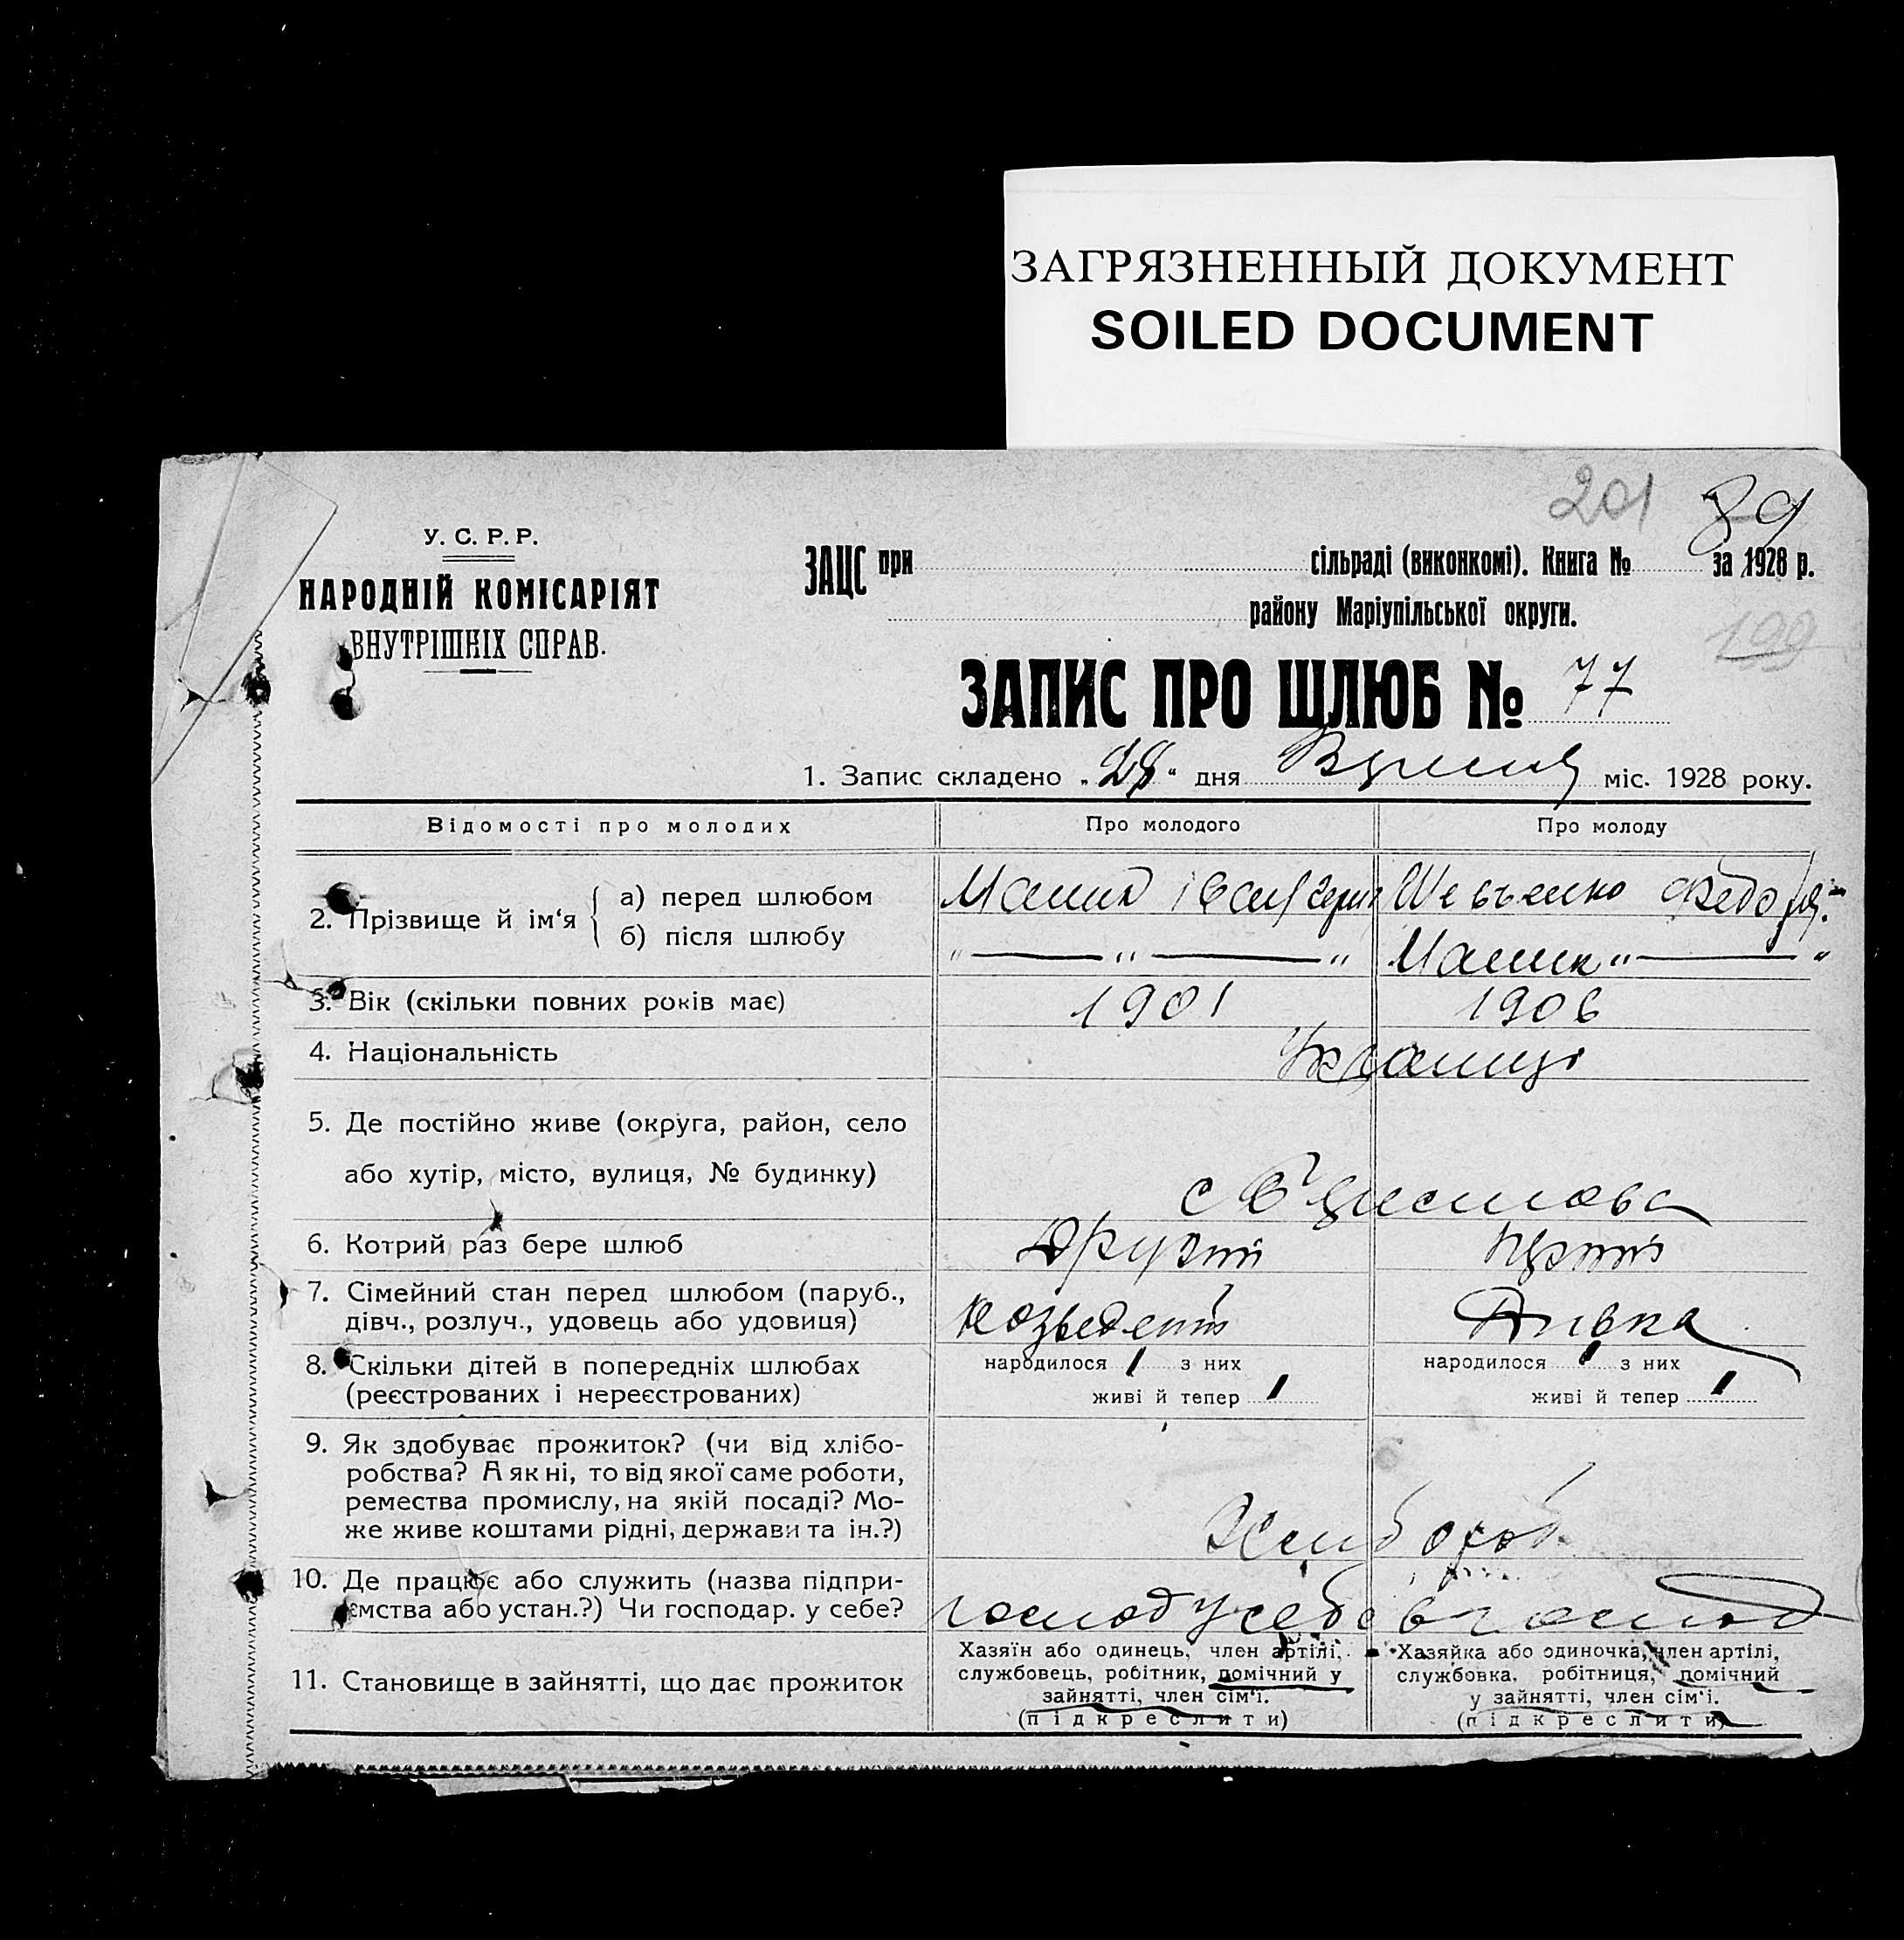 ЗАГРЯЗНЕННЫЙ ДОКУМЕНТ
SOILED DOCUMENT
201 89
У. С. Р. Р.
НАРОДНІЙ КОМІСАРІЯТ
ВНУТРІШНІХ СПРАВ.
ЗАЦС при сільраді (виконкомі). Книга № за 1928 р.
району Маріупільської округи.
199
ЗАПИС ПРО ШЛЮБ № 77
1. Запис складено „28“ дня міс. 1928 року.
Відомості про молодих Про молодого Про молоду
2. Прізвище й ім‘я а) перед шлюбом
б) після шлюбу
3. Вік (скільки повних років має) 1901 1906
4. Національність Українці
5. Де постійно живе (округа, район, село
або хутір, місто, вулиця, № будинку)
6. Котрий раз бере шлюб Другий
7. Сімейний стан перед шлюбом (паруб.,
дівч., розлуч., удовець або удовиця) Дивка
8. Скільки дітей в попередніх шлюбах народилося 1 з них народилося 1 з них
(реєстрованих і нереєстрованих) живі й тепер 1 живі й тепер 1
9. Як здобуває прожиток? (чи від хлібо-
робства? А як ні, то від якої саме роботи,
ремества промислу, на якій посаді? Мо-
же живе коштами рідні, держави та ін.?) Хлибороб
10. Де працює або служить (назва підпри-
ємства або устан.?) Чи господар. у себе? господ у себе в господ
11. Становище в зайнятті, що дає прожиток
Хазяїн або одинець, член артілі, службовець, робітник, помічний у зайнятті, член сім‘ї.
(підкреслити)
Хазяйка або одиночка, член артілі, службовка, робітниця, помічний у зайнятті, член сім‘ї.
(підкреслити)